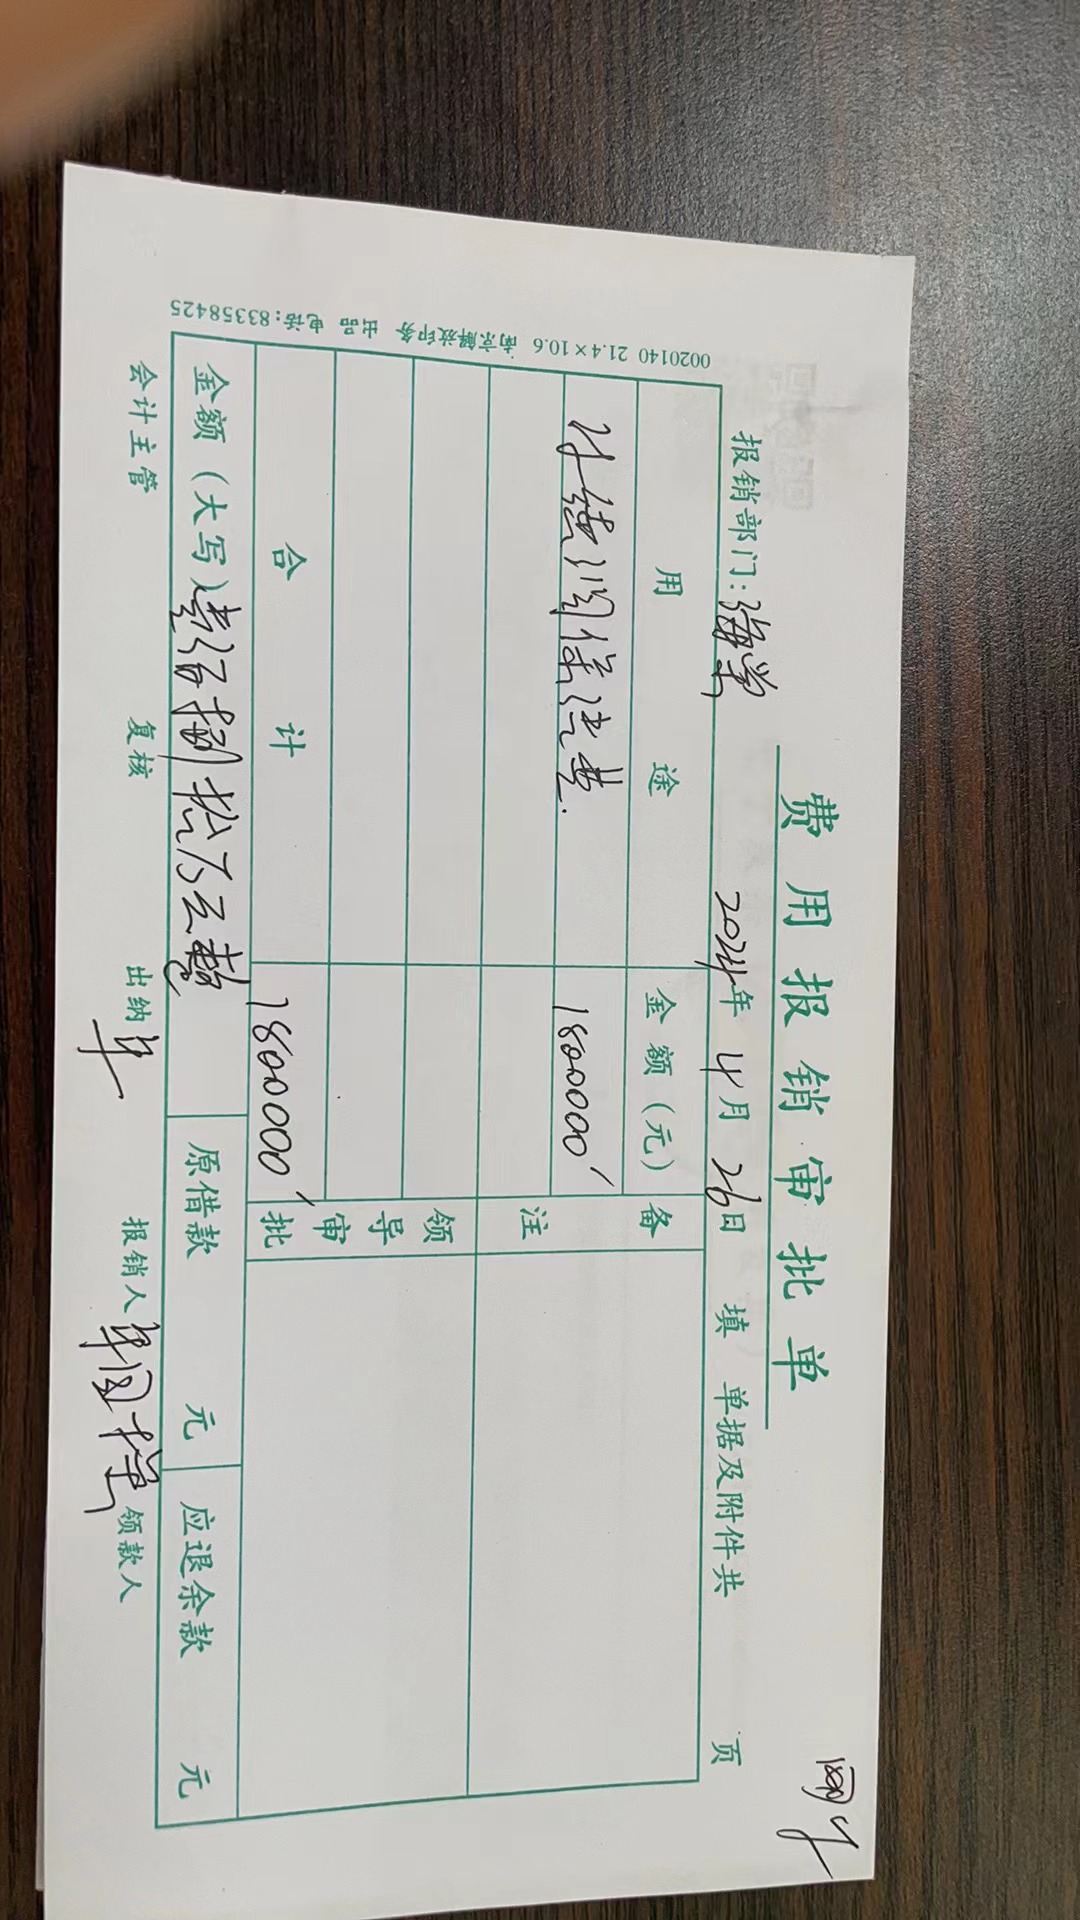 费用报销审批单
报销部门：海棠 2024年 4月 26日 填 单据及附件共 页
用途 金额（元） 备注
费 1800000
领导审批
合计 1800000
金额（大写）壹佰捌拾万元整 原借款 元 应退余款 元
会计主管 复核 出纳 报销人 领款人
0020140 21.4×10.6 南京解放印务 出品 电话:83358425